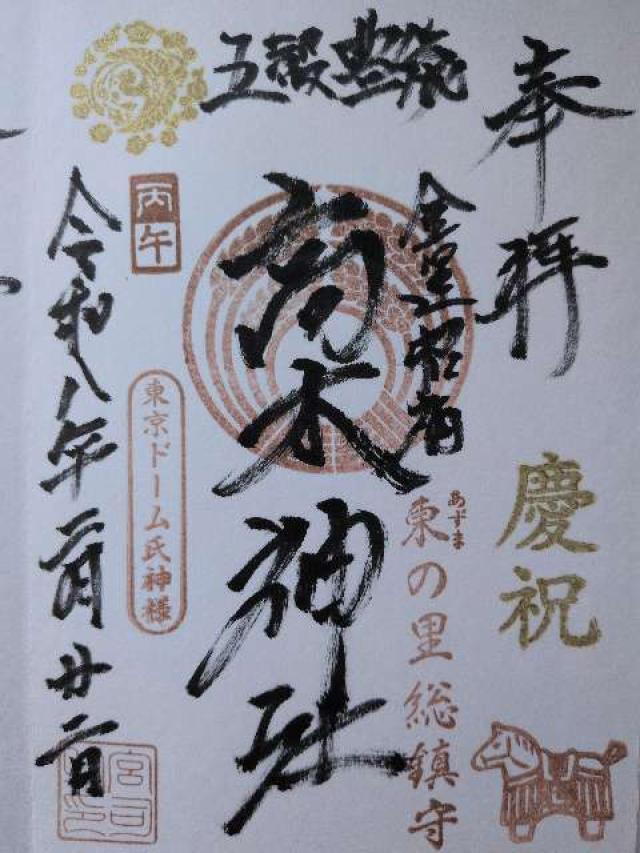 奉拝
慶祝
五穀豊穣
金運招福
あずま
東の里総鎮守
高木神社
丙午
東京ドーム氏神様
令和八年二月廿二日
宮司